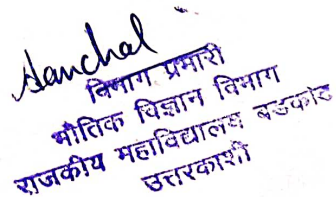 Aanchal
विभाग प्रभारी
भौतिक विज्ञान विभाग
राजकीय महाविद्यालय बडकोट
उत्तरकाशी